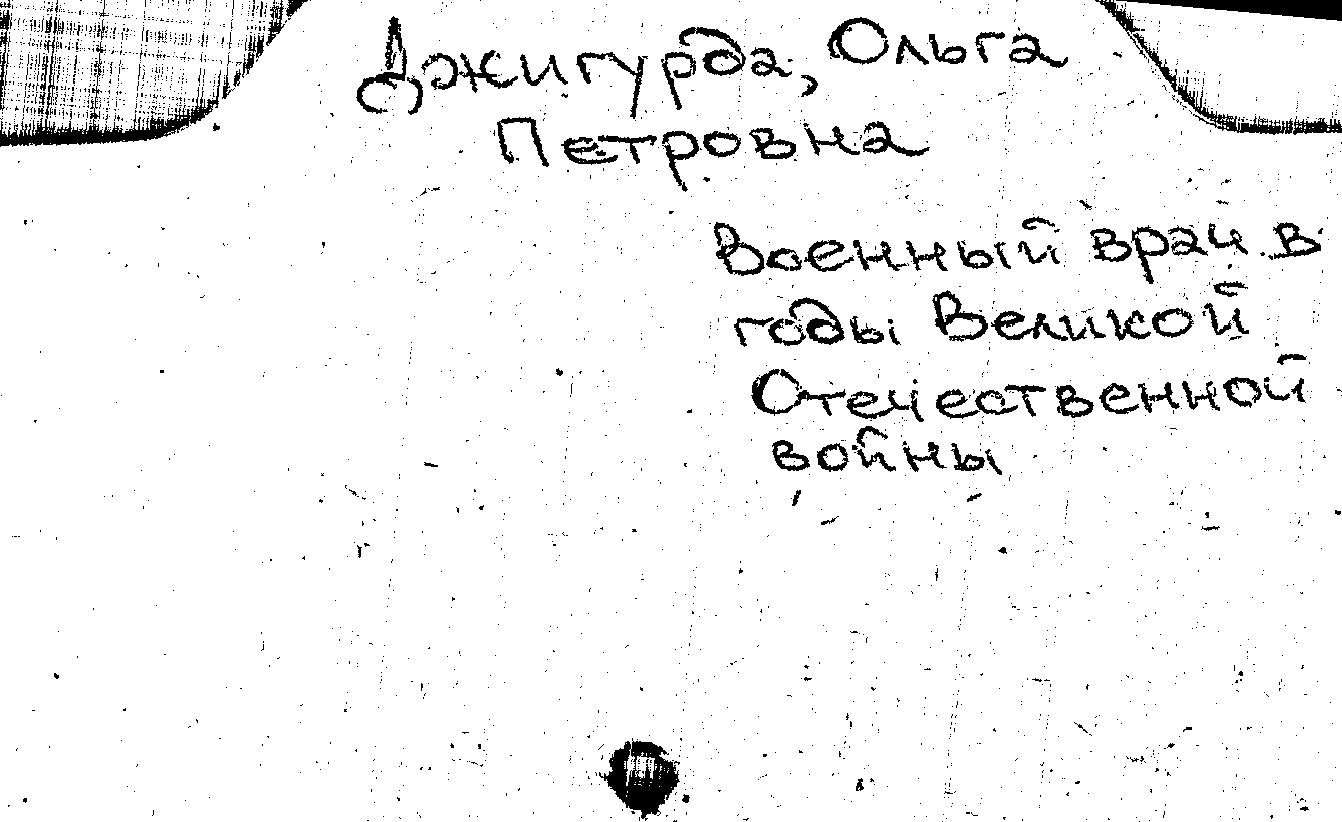 Джигурда, Ольга
Петровна
Военный врач в
годы Великой
Отечественной
войны